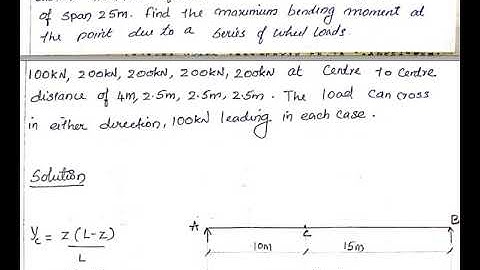 of span 25m. Find the maximum bending moment at
the point due to a series of wheel loads.
100kN, 200kN, 200kN, 200kN, 200kN at Centre to Centre
distance of 4m, 2.5m, 2.5m, 2.5m. The load can cross
in either direction, 100kN leading in each case.
Solution
A
B
yc = z(L-z)
L
C
10m
15m